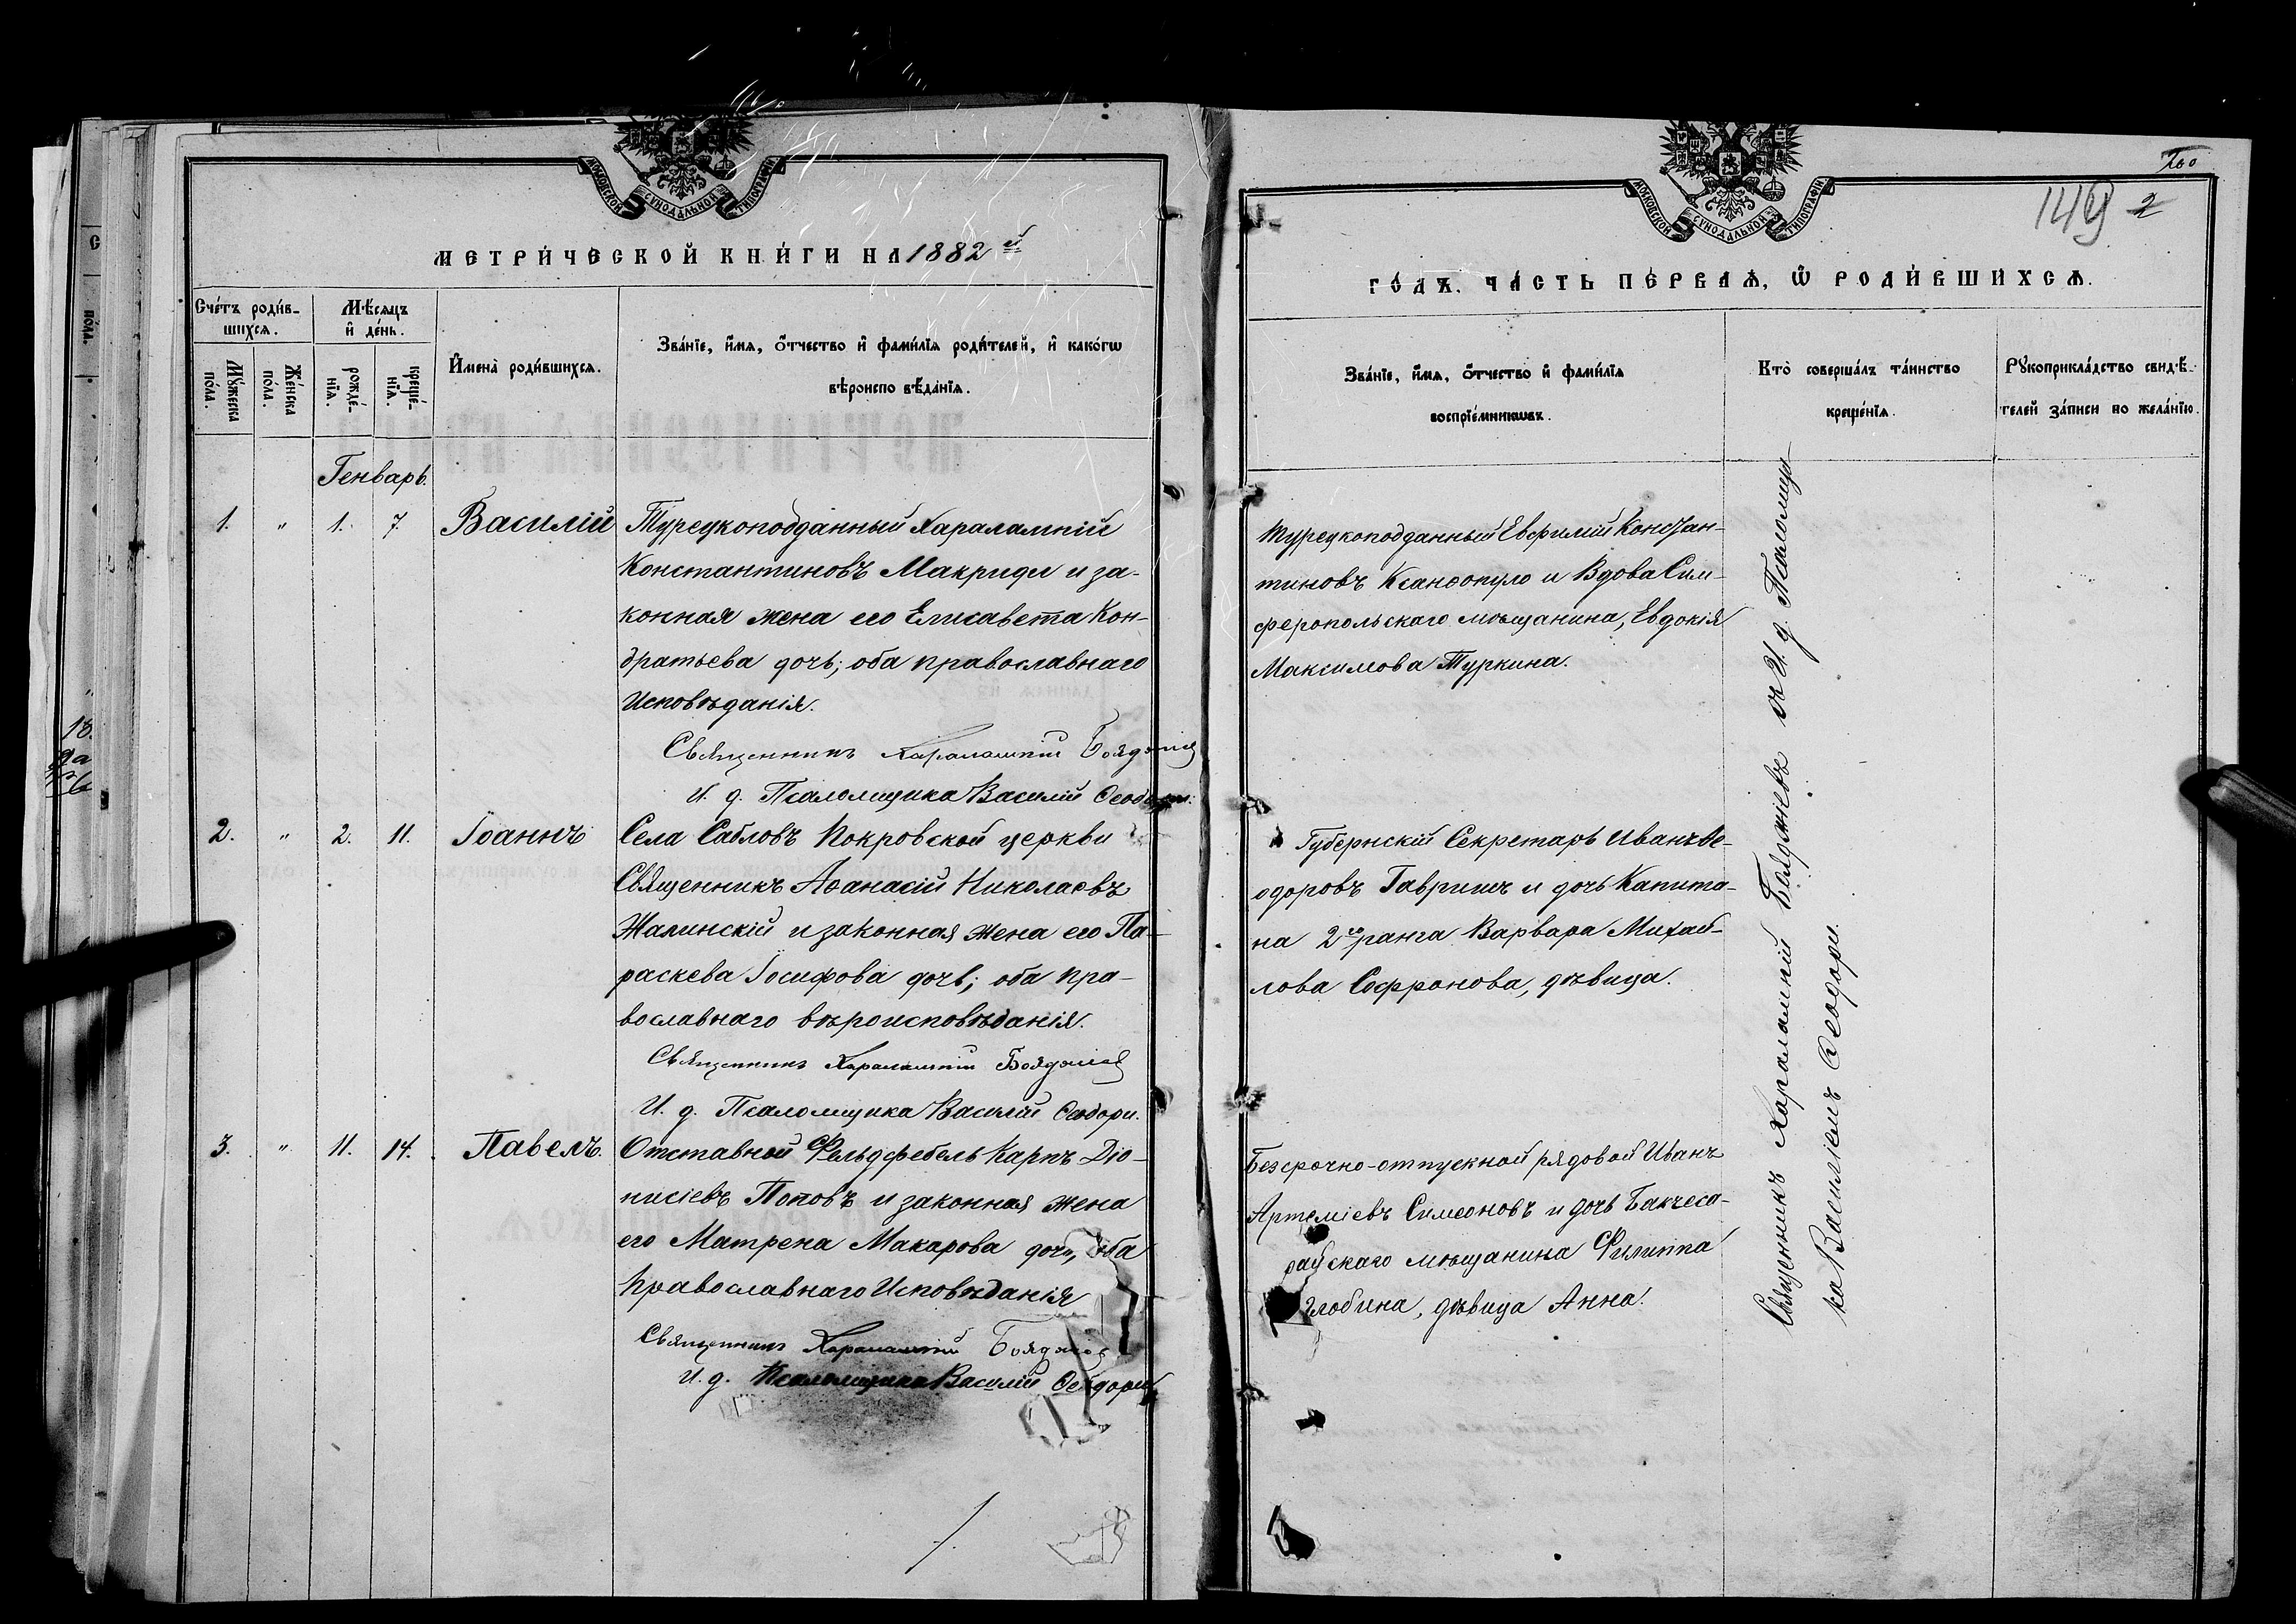 МОСКОВСКОЙ СѴНОДАЛЬНОЙ ТИПОГРАФІИ
МЕТРИ́ЧЕСКОЙ КНИ́ГИ НА 1882 й
Сче́тъ роди́в-
шихсѧ.
Мꙋ́жеска
по́ла.
Же́нска
по́ла.
Мѣ́сѧцъ
и҆ де́нь.
рожде́-
нїѧ.
креще́-
нїѧ.
И҆мена̀ роди́вшихсѧ.
Зва́нїе, и҆́мѧ, ѻ҆́тчество и҆ фами́лїѧ роди́телей, и҆ како́гѡ
вѣроиспо вѣ́данїѧ.
Генварь.
1. " 1. 7. Василій
Турецкоподданный Харалампій
Константиновъ Макриди и за-
конная жена его Елисавета Кон-
дратьева дочь; оба православнаго
Исповѣданія.
Священникъ Харалампій
И. д. Псаломщика Василій Ѳеодори.
2. " 2. 11. Іоаннъ
Села Сабловъ Покровской церкви
Священникъ Аѳанасій Николаевъ
Жалинскій и законная жена его Па-
раскева Іосифова дочь; оба пра-
вославнаго вѣроисповѣданія.
Священникъ Харалампій
И. д. Псаломщика Василій Ѳеодори.
3. " 11. 14. Павелъ.
Отставной Фельдфебель Карпъ Діо-
нисіевъ Поповъ и законная жена
его Матрена Макарова дочь, оба
Православнаго Исповѣданія
Священникъ Харалампій
И. д. Псаломщика Василій Ѳеодори
МОСКОВСКОЙ СѴНОДАЛЬНОЙ ТИПОГРАФІИ
149 2
ГО́ДЪ. ЧА́СТЬ ПЕ́РВАѦ, Ѡ҆ РОДИ́ВШИХСѦ.
Зва́нїе, и҆́мѧ, ѻ҆́тчество и҆ фами́лїѧ
воспрїе́мникѡвъ.
Кто̀ соверша́лъ та́инство
креще́нїѧ.
Рꙋкоприкла́дство свидѣ́-
телей за́писи по жела́нїю.
Турецкоподданный Евфимій Констан-
тиновъ Ксанѳопуло и Вдова Сим-
феропольскаго мѣщанина, Евдокія
Максимова Туркина.
Губернскій Секретарь Иванъ Ѳе-
одоровъ Гавришъ и дочь Капита-
на 2го ранга Варвара Михай-
лова Софронова, дѣвица.
Безсрочно-отпускной рядовой Иванъ
Артеміевъ Симеоновъ и дочь Бакчеса-
райскаго мѣщанина Филиппа
Злобина, дѣвица Анна.
Священникъ Харалампій Бояджіевъ съ И. д. Псаломщи-
ка Василіемъ Ѳеодори.